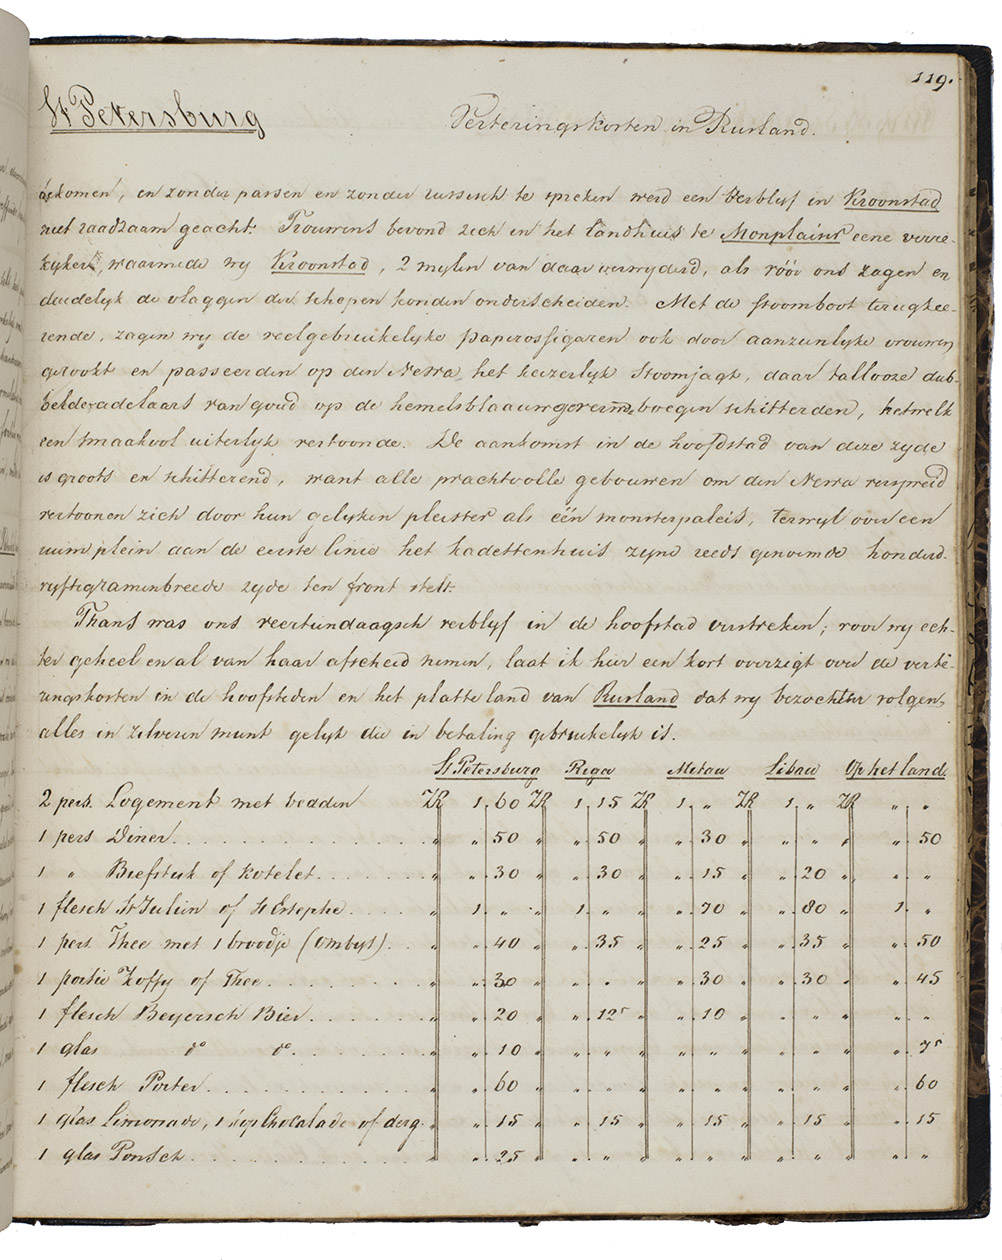 119.
St Petersburg
Verteringskosten in Rusland.
gekomen, en zonder passen en zonder russisch te spreken werd een verblyf in Kroonstad
niet raadzaam geacht. Trouwens bevond zich in het landhuis te Monplaisir eene verre-
kijker, waarmede wy Kroonstad, 2 mylen van daar verwyderd, als vóór ons zagen en
duidelyk de vlaggen der schepen konden onderscheiden. Met de stoomboot terugkee-
rende, zagen wy de veelgebruikelyke papierossigaren ook door aanzienlyke vrouwen
gerookt en passeerden op den Newa het keizerlyk stoomjagt, daar tallooze dub-
belde adelaars van goud op de hemelsblaauwgeverwde boegen schitterden, hetwelk
een smaakvol uiterlyk vertoonde. De aankomst in de hoofdstad van deze zyde
is groots en schitterend, want alle prachtvolle gebouwen om den Newa verspreid
vertoonen zich door hun gelyken pleister als één monsterpaleis, terwyl over een
ruim plein aan de eerste linie het kadettenhuis zyne reeds genoemde honderd-
vyftigraambreede zyde ten front stelt.
Thans was ons veertiendaagsch verblyf in de hoofstad verstreken; voor wy ech-
ter geheel en al van haar afscheid nemen, laat ik hier een kort overzigt over de verte-
ringskosten in de hoofsteden en het platteland van Rusland dat wy bezochten volgen,
alles in zilveren munt gelyk die in betaling gebruikelyk is.
St Petersburg Riga Mitau Libau Op het land.
2 pers. Logement met bedden ZR 1 60 ZR 1 15 ZR 1 „ ZR 1 „ ZR „ „
1 pers Diner „ „ 50 „ „ 50 „ „ 30 „ „ „ „ „ 50
1 „ Biefstuk of kotelet „ „ 30 „ „ 30 „ „ 15 „ „ 20 „ „ „
1 flesch St Julien of St Estephe „ 1 „ „ 1 „ „ „ 70 „ „ 80 „ 1 „
1 pers. Thee met 1 broodje (ombyt) „ „ 40 „ „ 35 „ „ 25 „ „ 35 „ „ 50
1 portie Koffy of Thee „ „ 30 „ „ „ „ „ 30 „ „ 30 „ „ 45
1 flesch Beyersch Bier „ „ 20 „ „ 12⁵ „ „ 10 „ „ „ „ „ „
1 glas do do „ „ 10 „ „ „ „ „ „ „ „ „ „ „ 7⁵
1 flesch Porter „ „ 60 „ „ „ „ „ „ „ „ „ „ „ 60
1 glas Limonade, 1 kop Chokolade of derg. „ „ 15 „ „ 15 „ „ 15 „ „ 15 „ „ 15
1 glas Ponsch „ „ 25 „ „ „ „ „ „ „ „ „ „ „ „